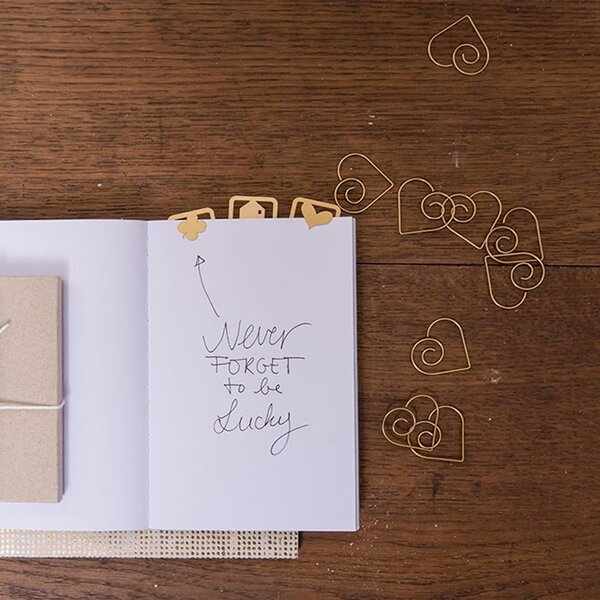 Never
FORGET
to be
Lucky